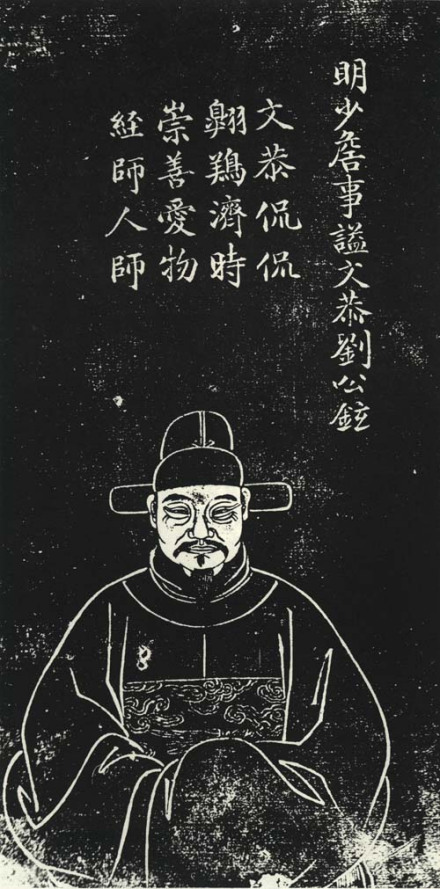 明少詹事謚文恭劉公鉉
文恭侃侃
濟時
崇善愛物
経師人師